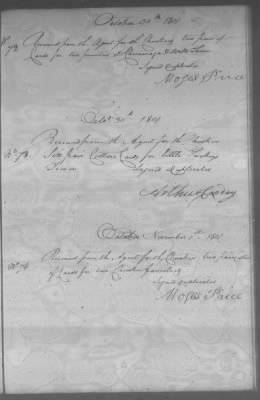 October 30th 1801
No 72 Received from the Agent for the Cherokees two pair of
Cards for two families at
Signed duplicates
Moses Price
Octor 30th 1801
Received from the Agent for the Cherokees
No 73 Six pair Cotton Cards for little Turkeys
Town Signed Duplicates
Arthur Coody
November 1st 1801
Received from the Agent for the Cherokees two pair
No 74 of Cards for two Cherokee families
Signed duplicates
Moses Price